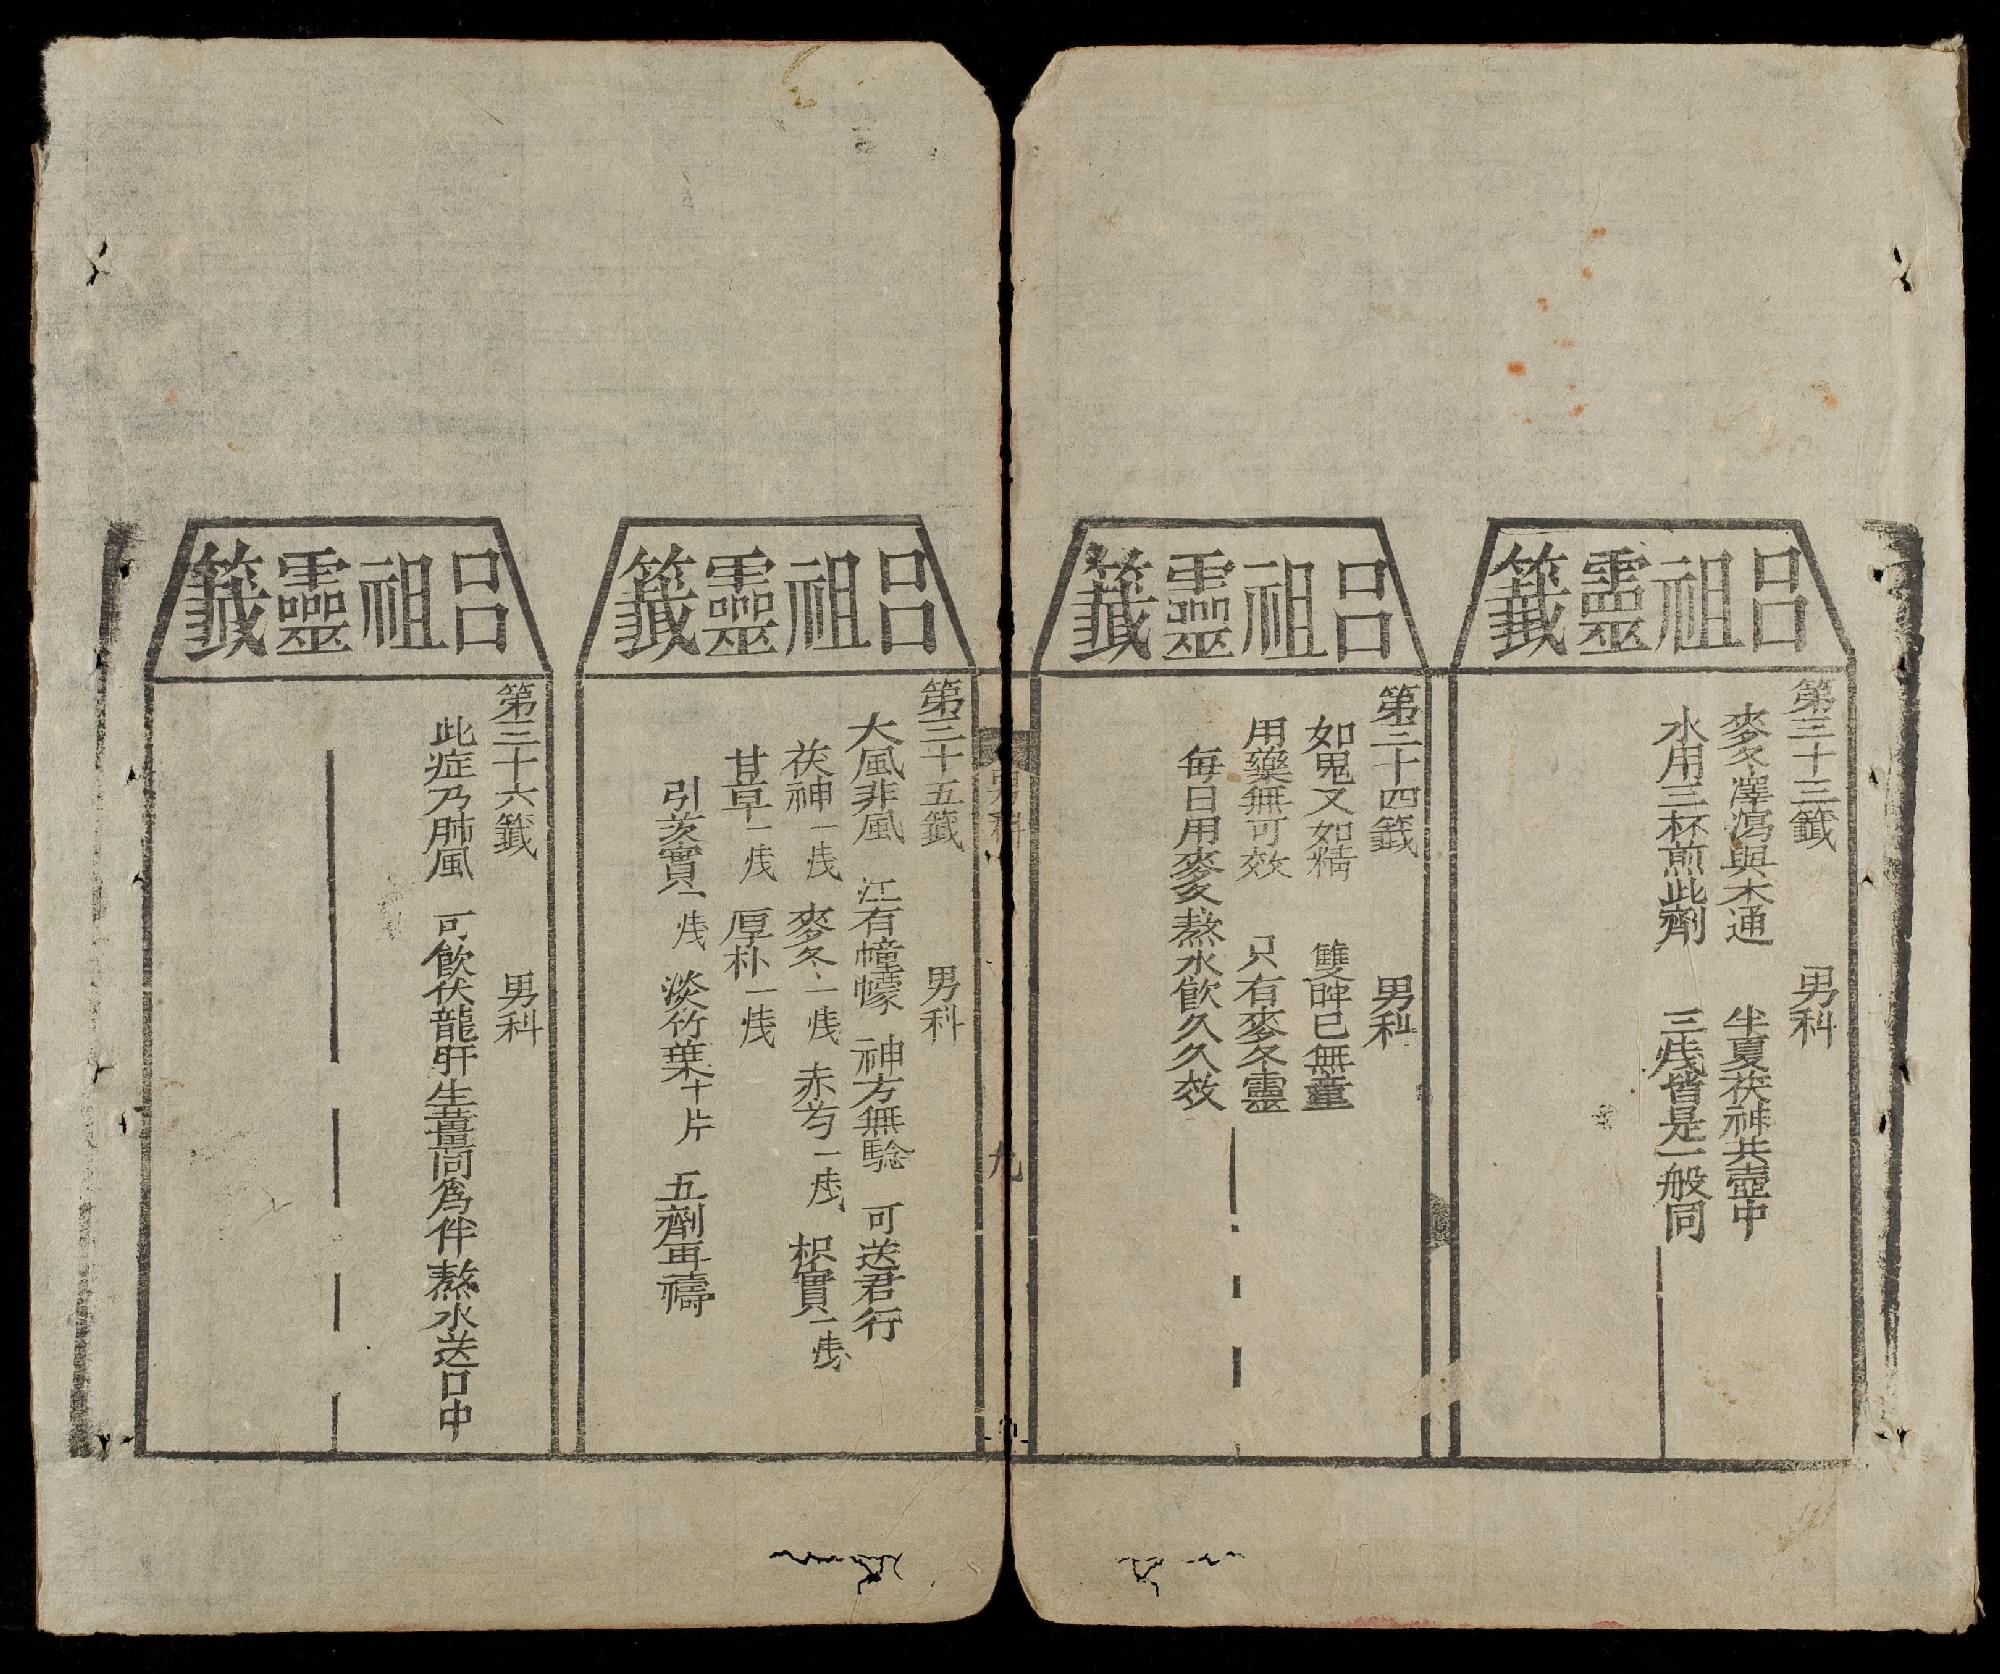 呂祖靈籤
第三十三籤　男科
麥冬澤瀉與木通　半夏茯神共壺中
水用三杯煎此劑　三戔皆是一般同
呂祖靈籤
第三十四籤　男科
如鬼又如精　雙眸已無童
用藥無可效　只有麥冬靈
每日用麥冬熬水飲久久效
男科
九
呂祖靈籤
第三十五籤　男科
大風非風　江有幢幪　神方無驗　可送君行
茯神一戔　麥冬二戔　赤芍一戔　枳實一戔
甘草一戔　厚朴一戔
引芡實一戔　淡竹葉十片　五劑再禱
呂祖靈籤
第三十六籤　男科
此症乃肺風　可飲伏龍肝生薑同為伴熬水送口中